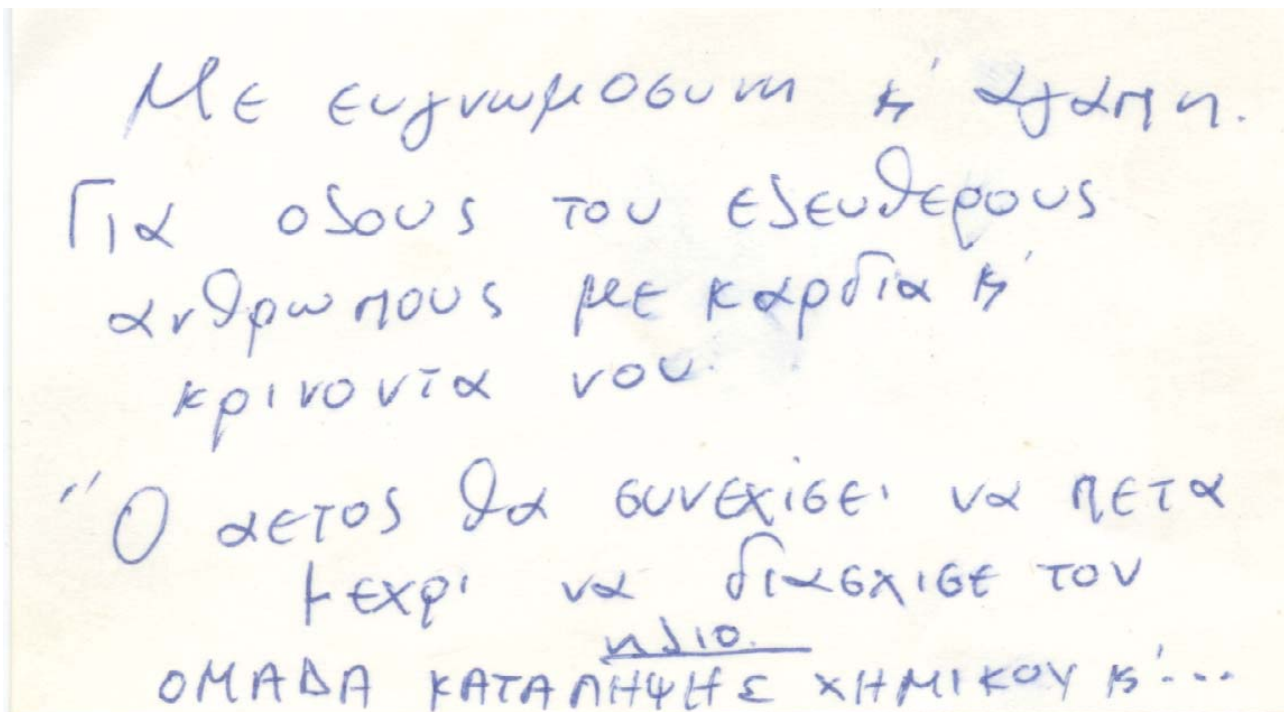 Με ευγνωμοσυνη κ' αγαπη.
Για ολους του ελευθερους
ανθρωπους με καρδια κ'
κρινοντα νου.
"Ο αετος θα συνεχισει να πετα
μεχρι να διασχισε τον
ηλιο.
ΟΜΑΔΑ ΚΑΤΑΛΗΨΗΣ ΧΗΜΙΚΟΥ κ'...